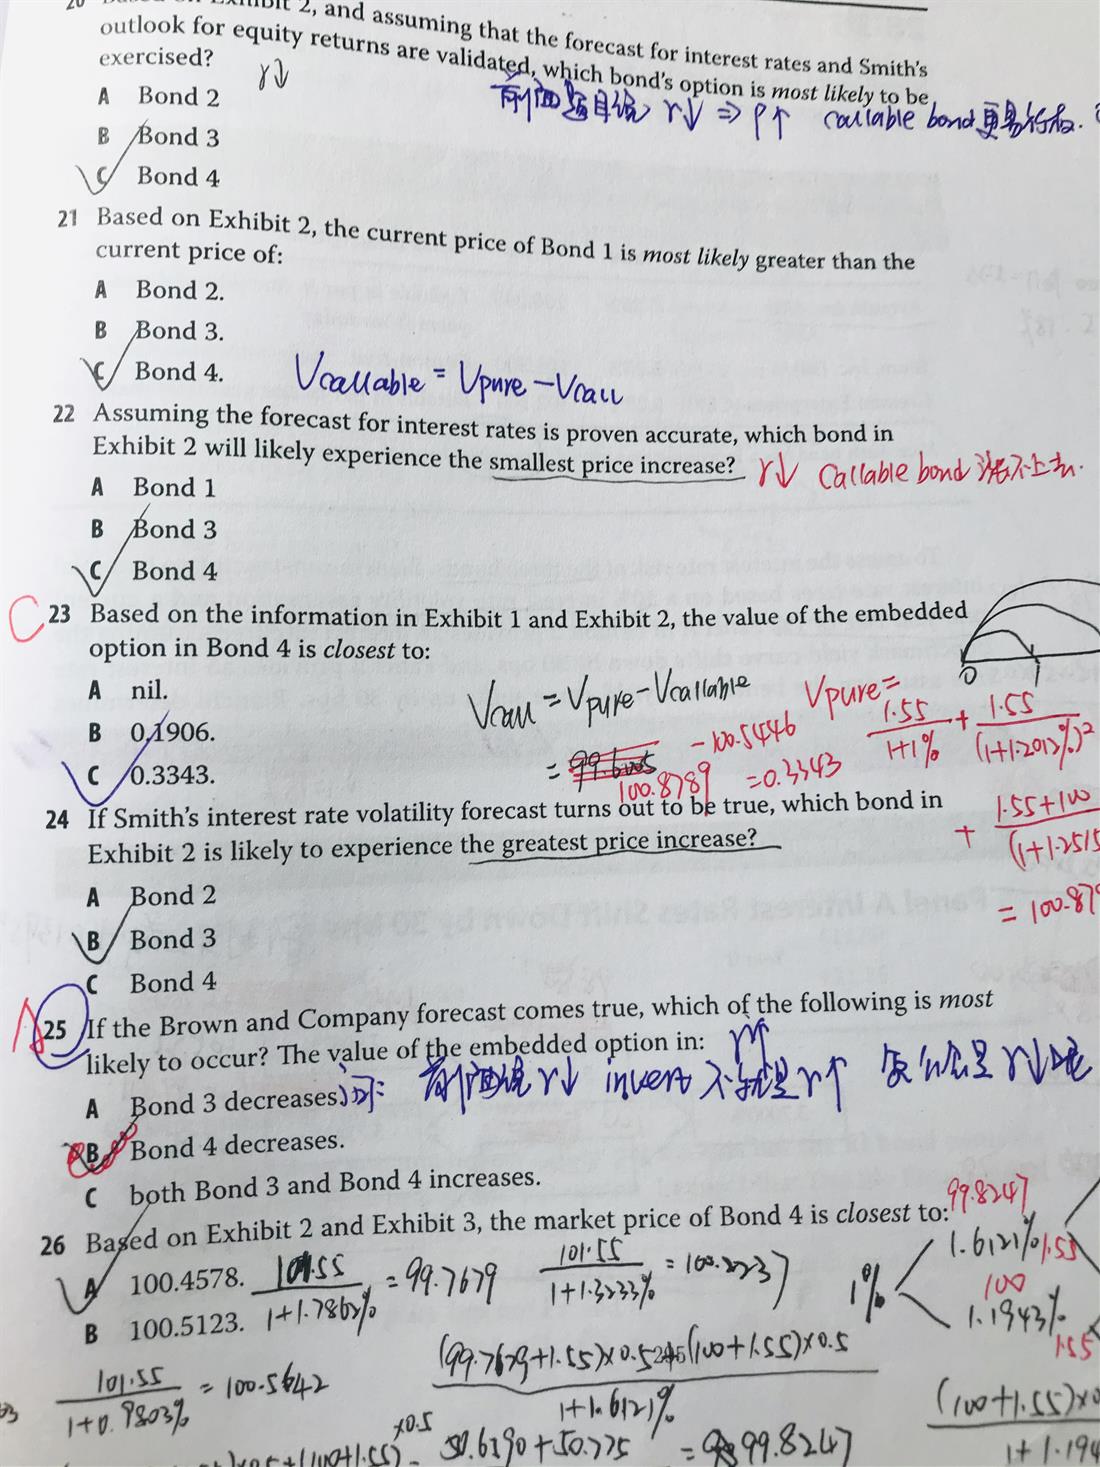 20 Based on Exhibit 2, and assuming that the forecast for interest rates and Smith's
outlook for equity returns are validated, which bond's option is most likely to be
exercised?
r↓
A Bond 2
前面题目说 r↓ ⇒ P↑ callable bond 更易行权.
B Bond 3
C Bond 4
21 Based on Exhibit 2, the current price of Bond 1 is most likely greater than the
current price of:
A Bond 2.
B Bond 3.
C Bond 4.
Vcallable = Vpure - Vcall
22 Assuming the forecast for interest rates is proven accurate, which bond in
Exhibit 2 will likely experience the smallest price increase?
r↓ callable bond 涨不上去.
A Bond 1
B Bond 3
C Bond 4
C
23 Based on the information in Exhibit 1 and Exhibit 2, the value of the embedded
option in Bond 4 is closest to:
0 1
A nil.
B 0.1906.
C 0.3343.
Vcall = Vpure - Vcallable
= 100.8789 - 100.5446
= 0.3343
Vpure =
1.55 / 1+1% + 1.55 / (1+1.2012%)²
+ 1.55+100 / (1+1.2515
= 100.879
24 If Smith's interest rate volatility forecast turns out to be true, which bond in
Exhibit 2 is likely to experience the greatest price increase?
A Bond 2
B Bond 3
C Bond 4
A
25 If the Brown and Company forecast comes true, which of the following is most
likely to occur? The value of the embedded option in:
r↑
A Bond 3 decreases.
问: 前面说 r↓ invert 不就是 r↑
B Bond 4 decreases.
C both Bond 3 and Bond 4 increases.
26 Based on Exhibit 2 and Exhibit 3, the market price of Bond 4 is closest to:
A 100.4578.
B 100.5123.
101.55 / 1+1.7862% = 99.7679
101.55 / 1+1.3233% = 100.2237
1%
99.8247
1.6121% 1.55
100
1.1943%
1.55
101.55 / 1+0.9803% = 100.5642
(100+1.55)×0.5
1+1.6121%
50.6390+50.775 = 99.8247
1+1.194